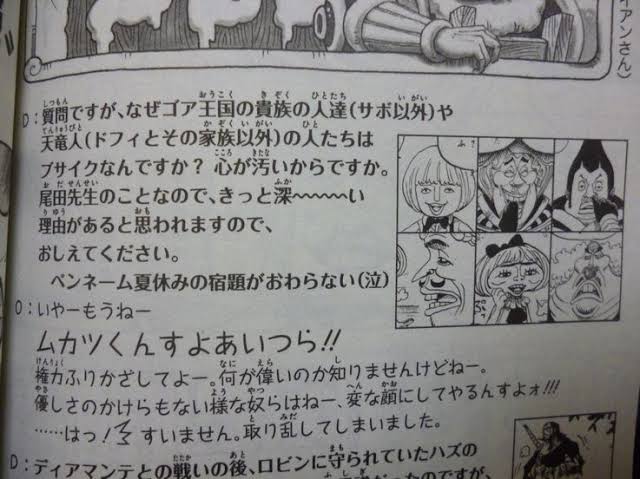 イアンさん)
D:質問ですが、なぜゴア王国の貴族の人達(サボ以外)や
天竜人(ドフィとその家族以外)の人たちは
ブサイクなんですか? 心が汚いからですか。
尾田先生のことなので、きっと深〜〜〜〜い
理由があると思われますので、
おしえてください。
ペンネーム夏休みの宿題がおわらない(泣)
O:いやーもうねー
ムカツくんすよあいつら!!
権力ふりかざしてよー。何が偉いのか知りませんけどねー。
優しさのかけらもない様な奴らはねー、変な顔にしてやるんすよォ!!!
……はっ! すいません。取り乱してしまいました。
D:ディアマンテとの戦いの後、ロビンに守られていたハズの